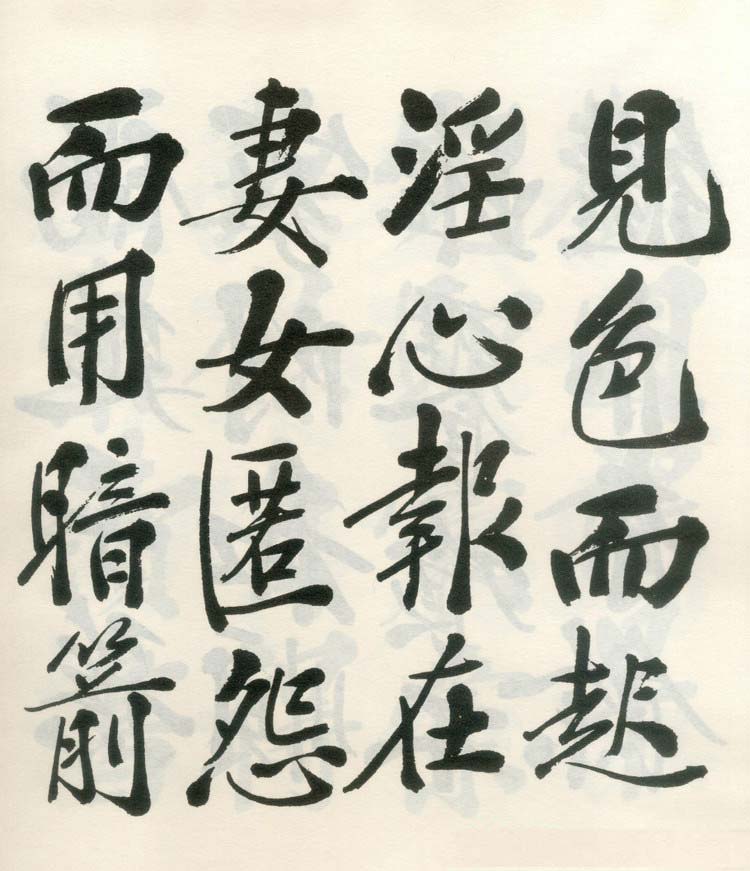 見色而起
淫心報在
妻女匿怨
而用暗箭